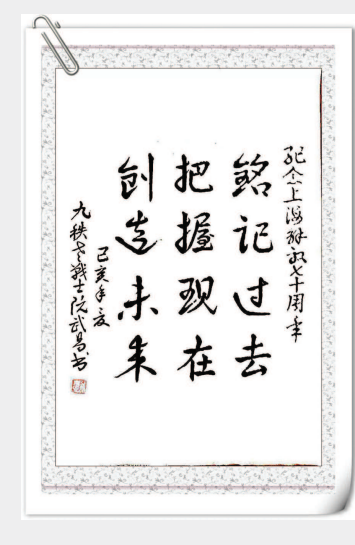 纪念上海解放七十周年
銘记过去
把握现在
创造未来
己亥年夏
九秩老战士阮武昌书